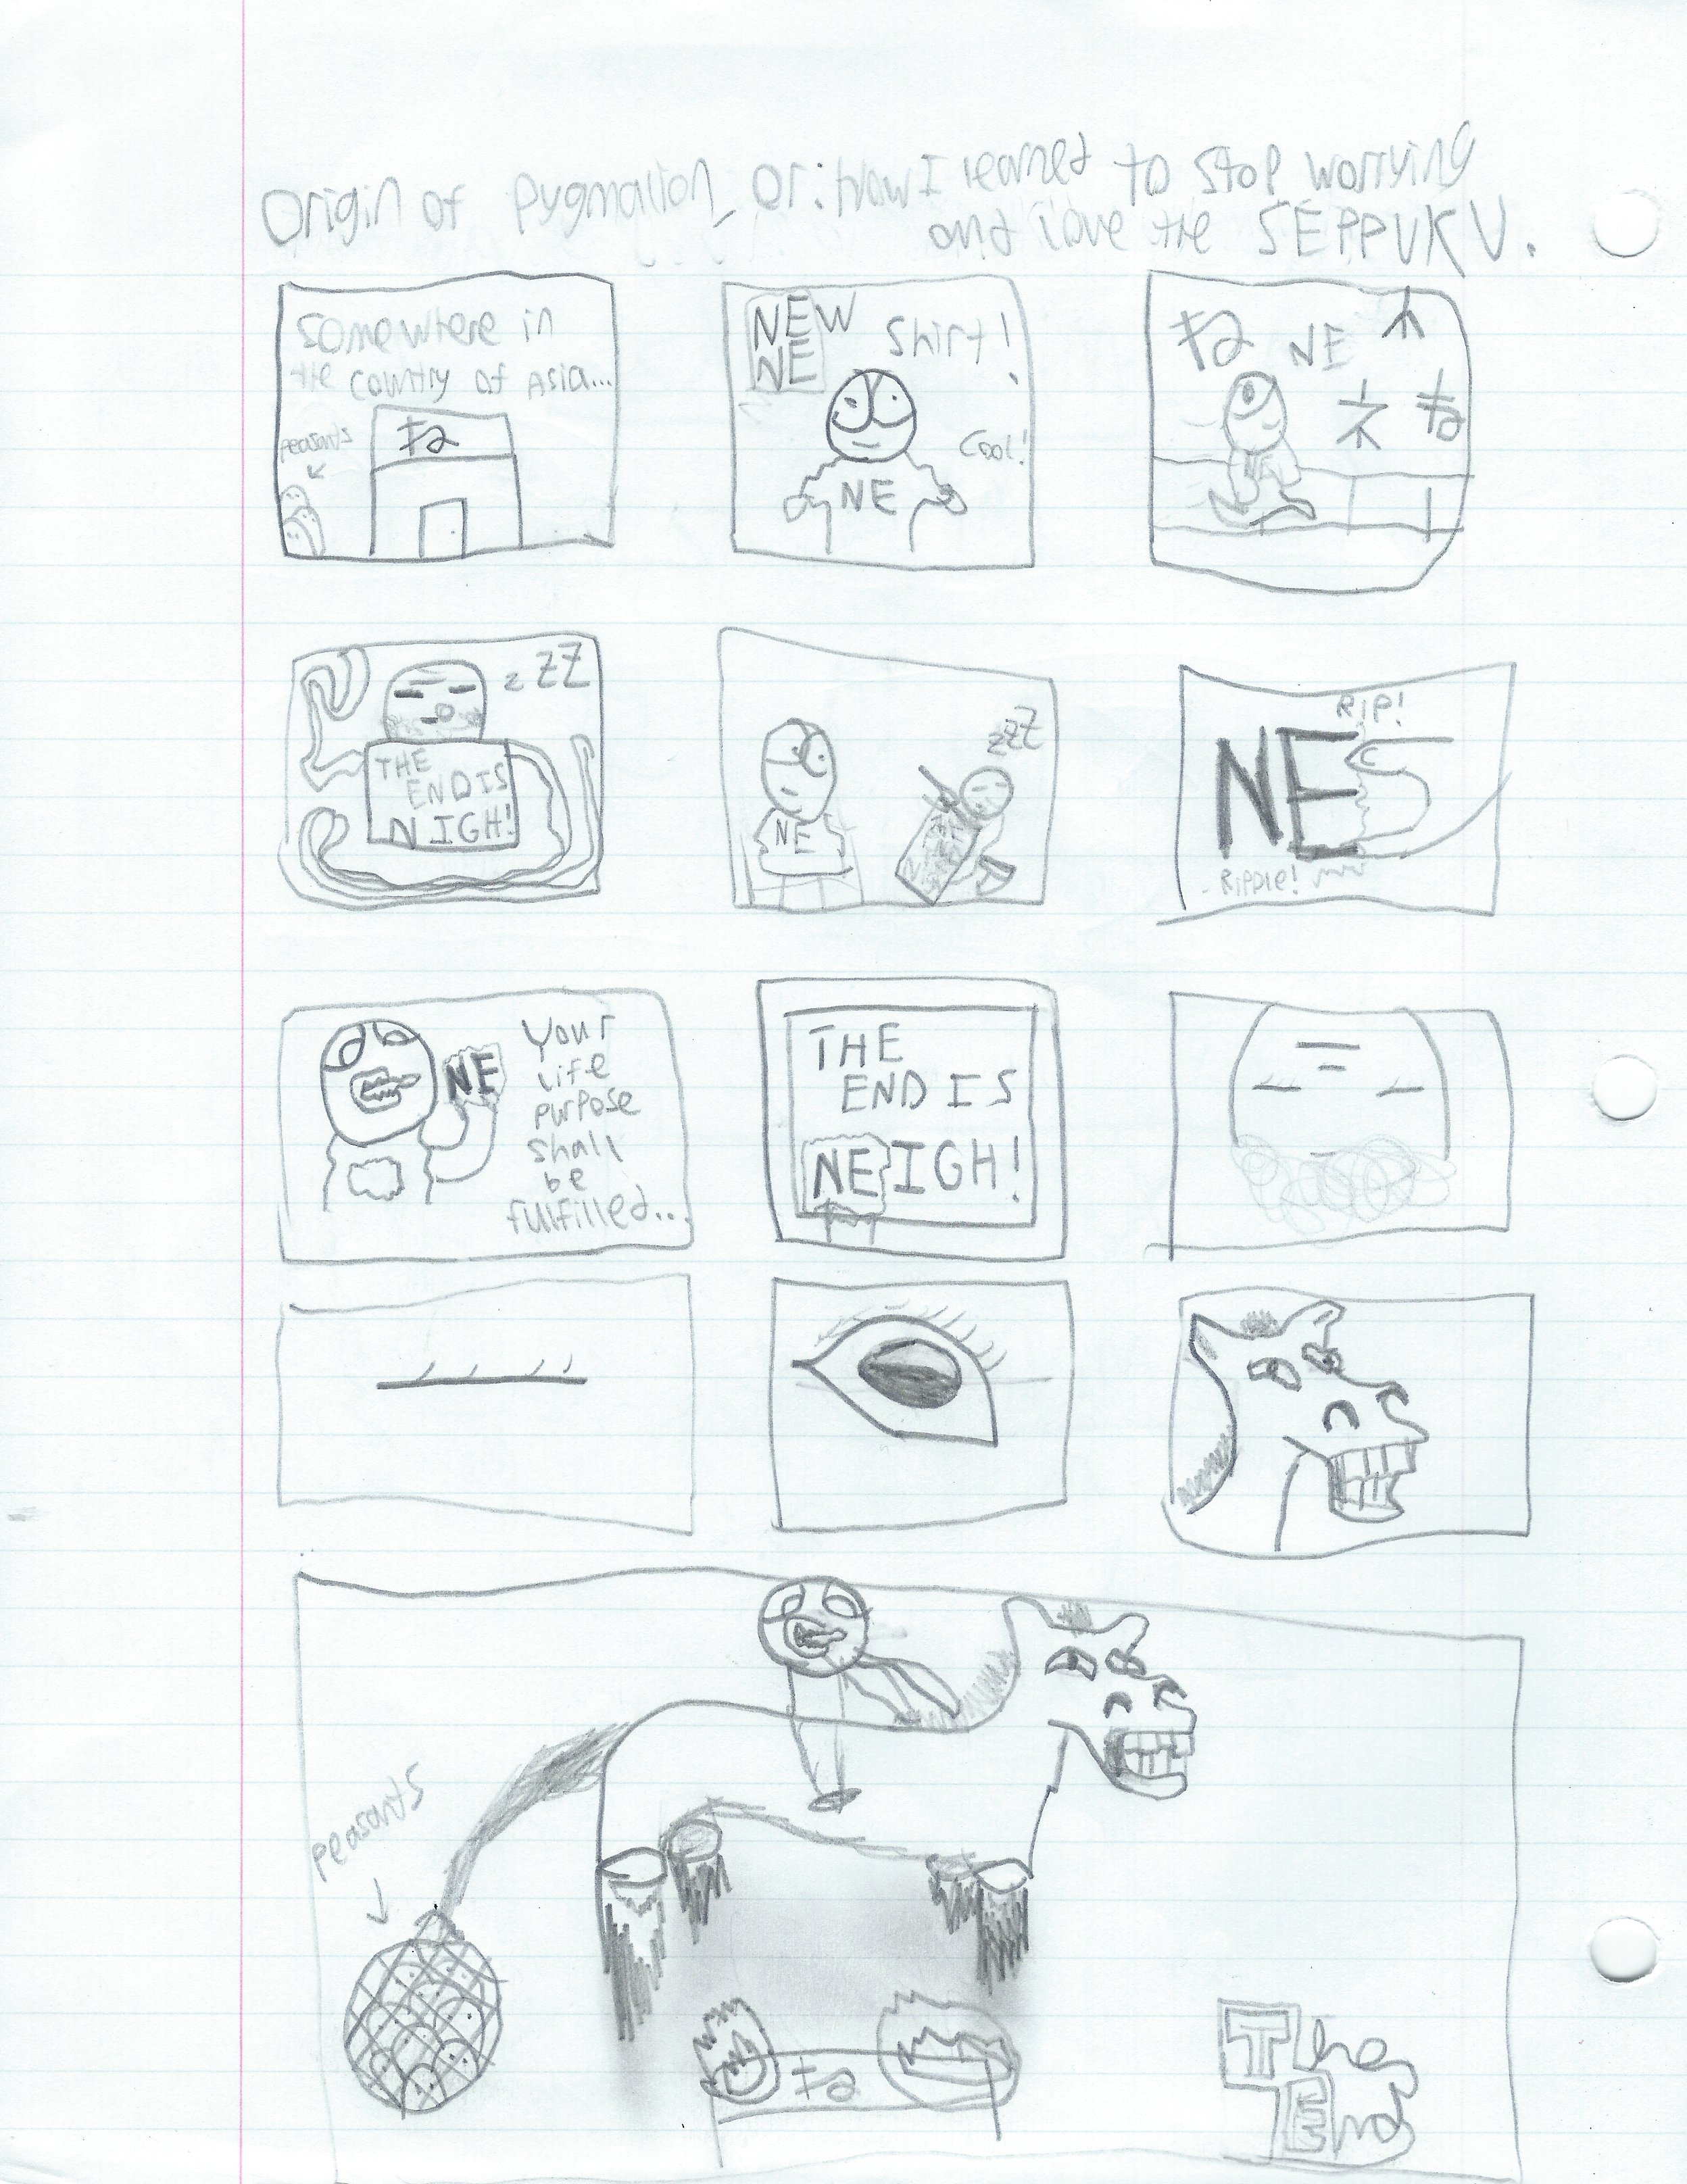 Origin of pygmalion_ or: How I learned to stop worrying
and love the SEPPUKU.
Somewhere in
the country of Asia...
peasants
ね
NEW
NE
Shirt!
Cool!
NE
ね NE
ネ ね
NE
zZZ
THE
END IS
NIGH!
zZZ
NE
RIP!
NE
Rippie!
Your
life
purpose
shall
be
fulfilled...
NE
THE
END IS
NEIGH!
peasants
ね
The
End